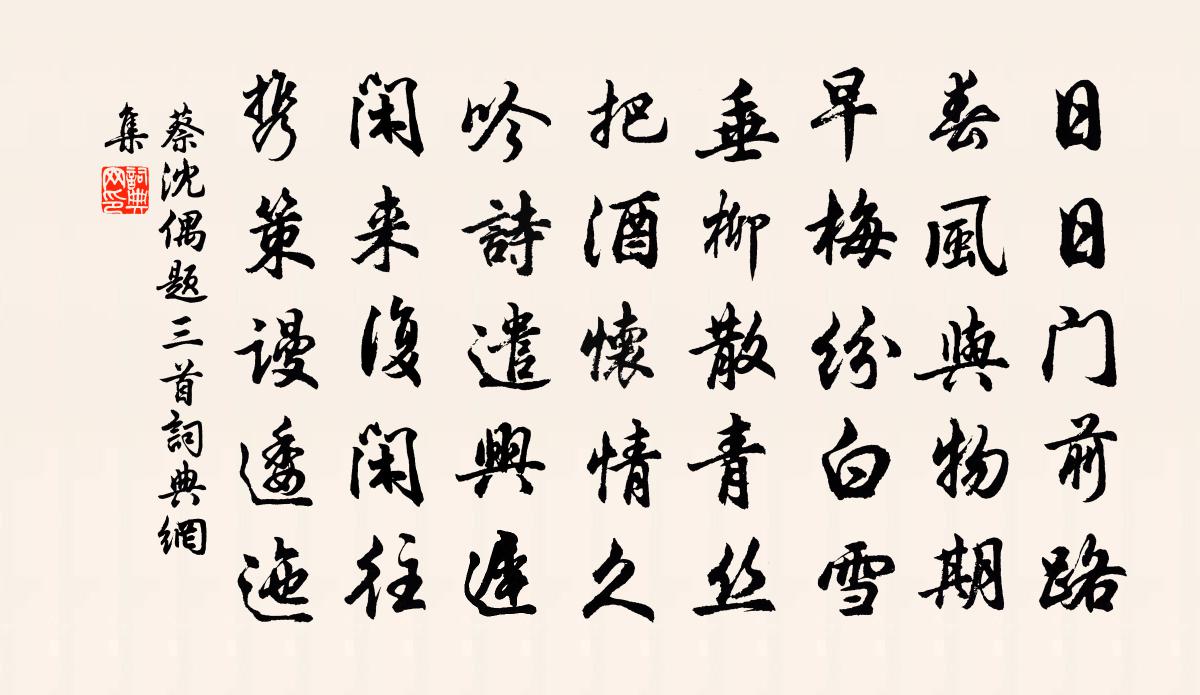 日日门前路
春風與物期
早梅纷白雪
垂柳散青丝
把酒懷情久
吟詩遣興遲
闲来復闲往
携策謾逶迤
蔡沈偶题三首詞典網
集
詞典
网印